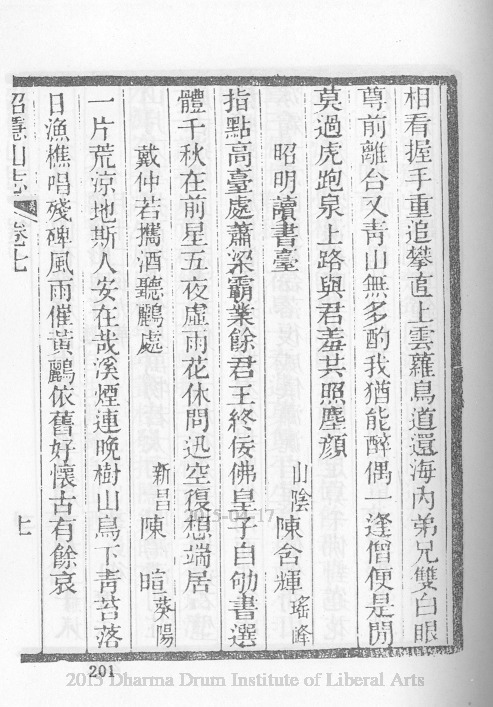 相看握手重追攀直上雲蘿鳥道還海內弟兄雙白眼
尊前離合又青山無多酌我猶能醉偶一逢僧便是閒
莫過虎跑泉上路與君羞共照塵顏
昭明讀書臺 山陰陳含輝瑤峰
指點高臺處蕭梁霸業餘君王終佞佛皇子自劬書選
體千秋在前星五夜虛雨花休問迅空復想端居
戴仲若攜酒聽鸝處 新昌陳暄葵陽
一片荒涼地斯人安在哉溪煙連晚樹山鳥下青苔落
日漁樵唱殘碑風雨催黃鸝依舊好懷古有餘哀
招隱山志 卷七 七
201
2015 Dharma Drum Institute of Liberal Arts